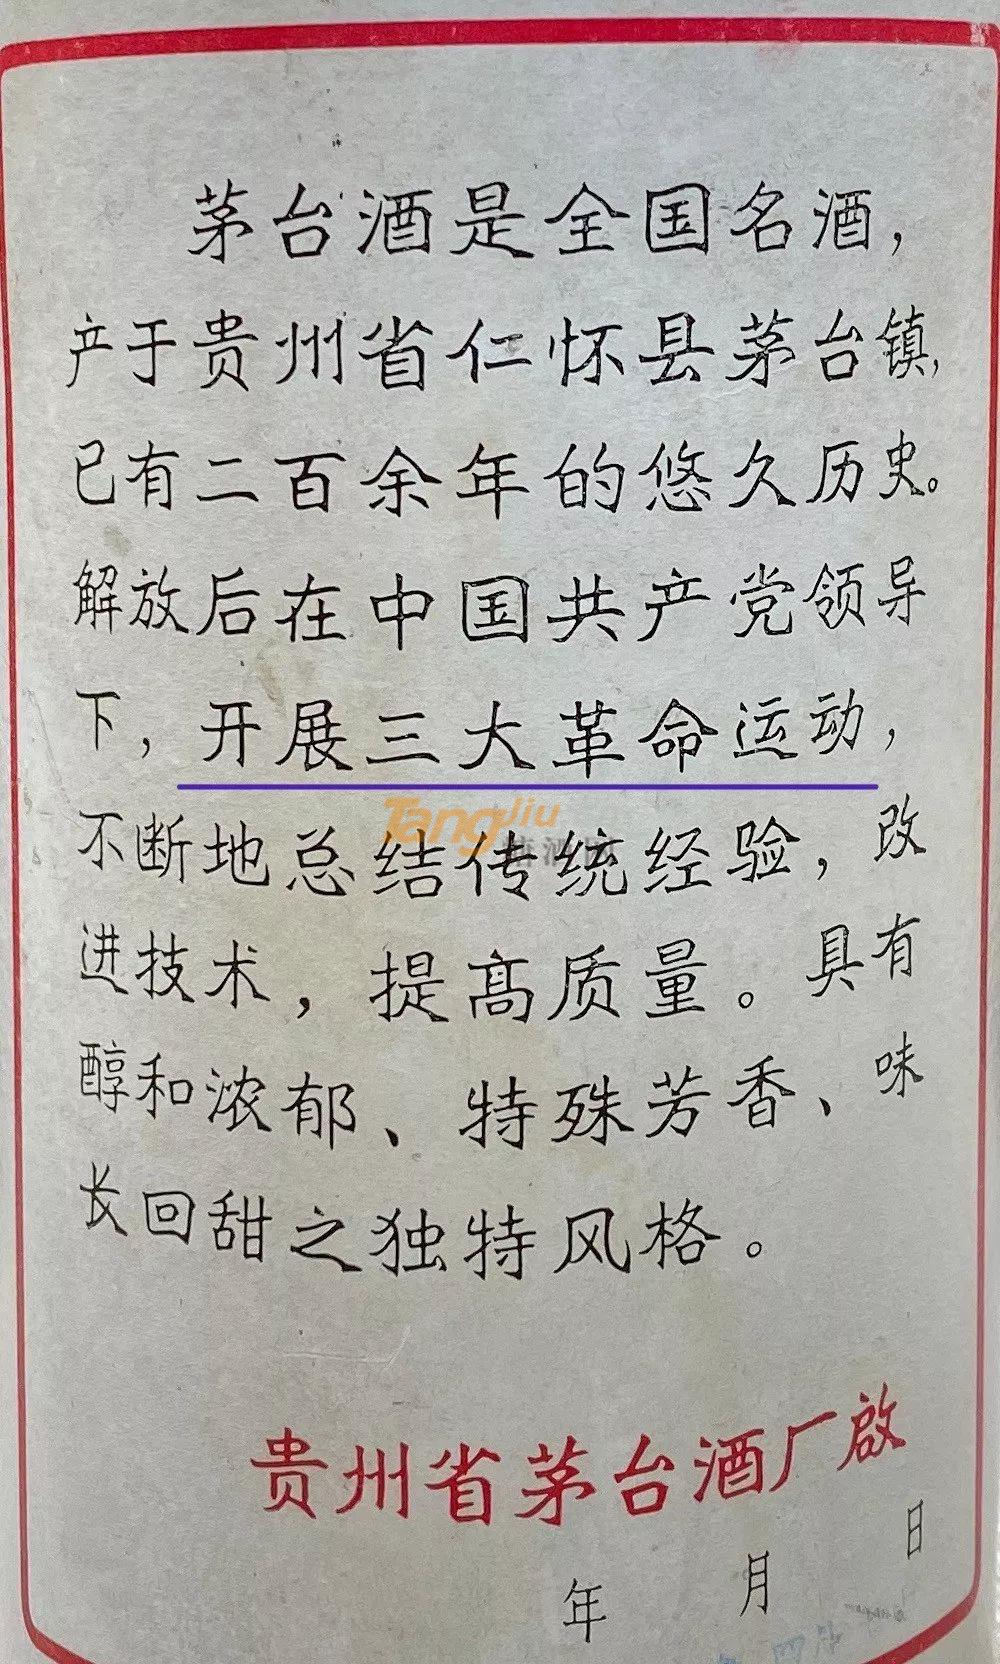 茅台酒是全国名酒，
产于贵州省仁怀县茅台镇，
已有二百余年的悠久历史。
解放后在中国共产党领导
下，开展三大革命运动，
TangJiu
不断地总结传统经验，改
进技术，提高质量。具有
醇和浓郁、特殊芳香、味
长回甜之独特风格。
贵州省茅台酒厂啟
年 月 日